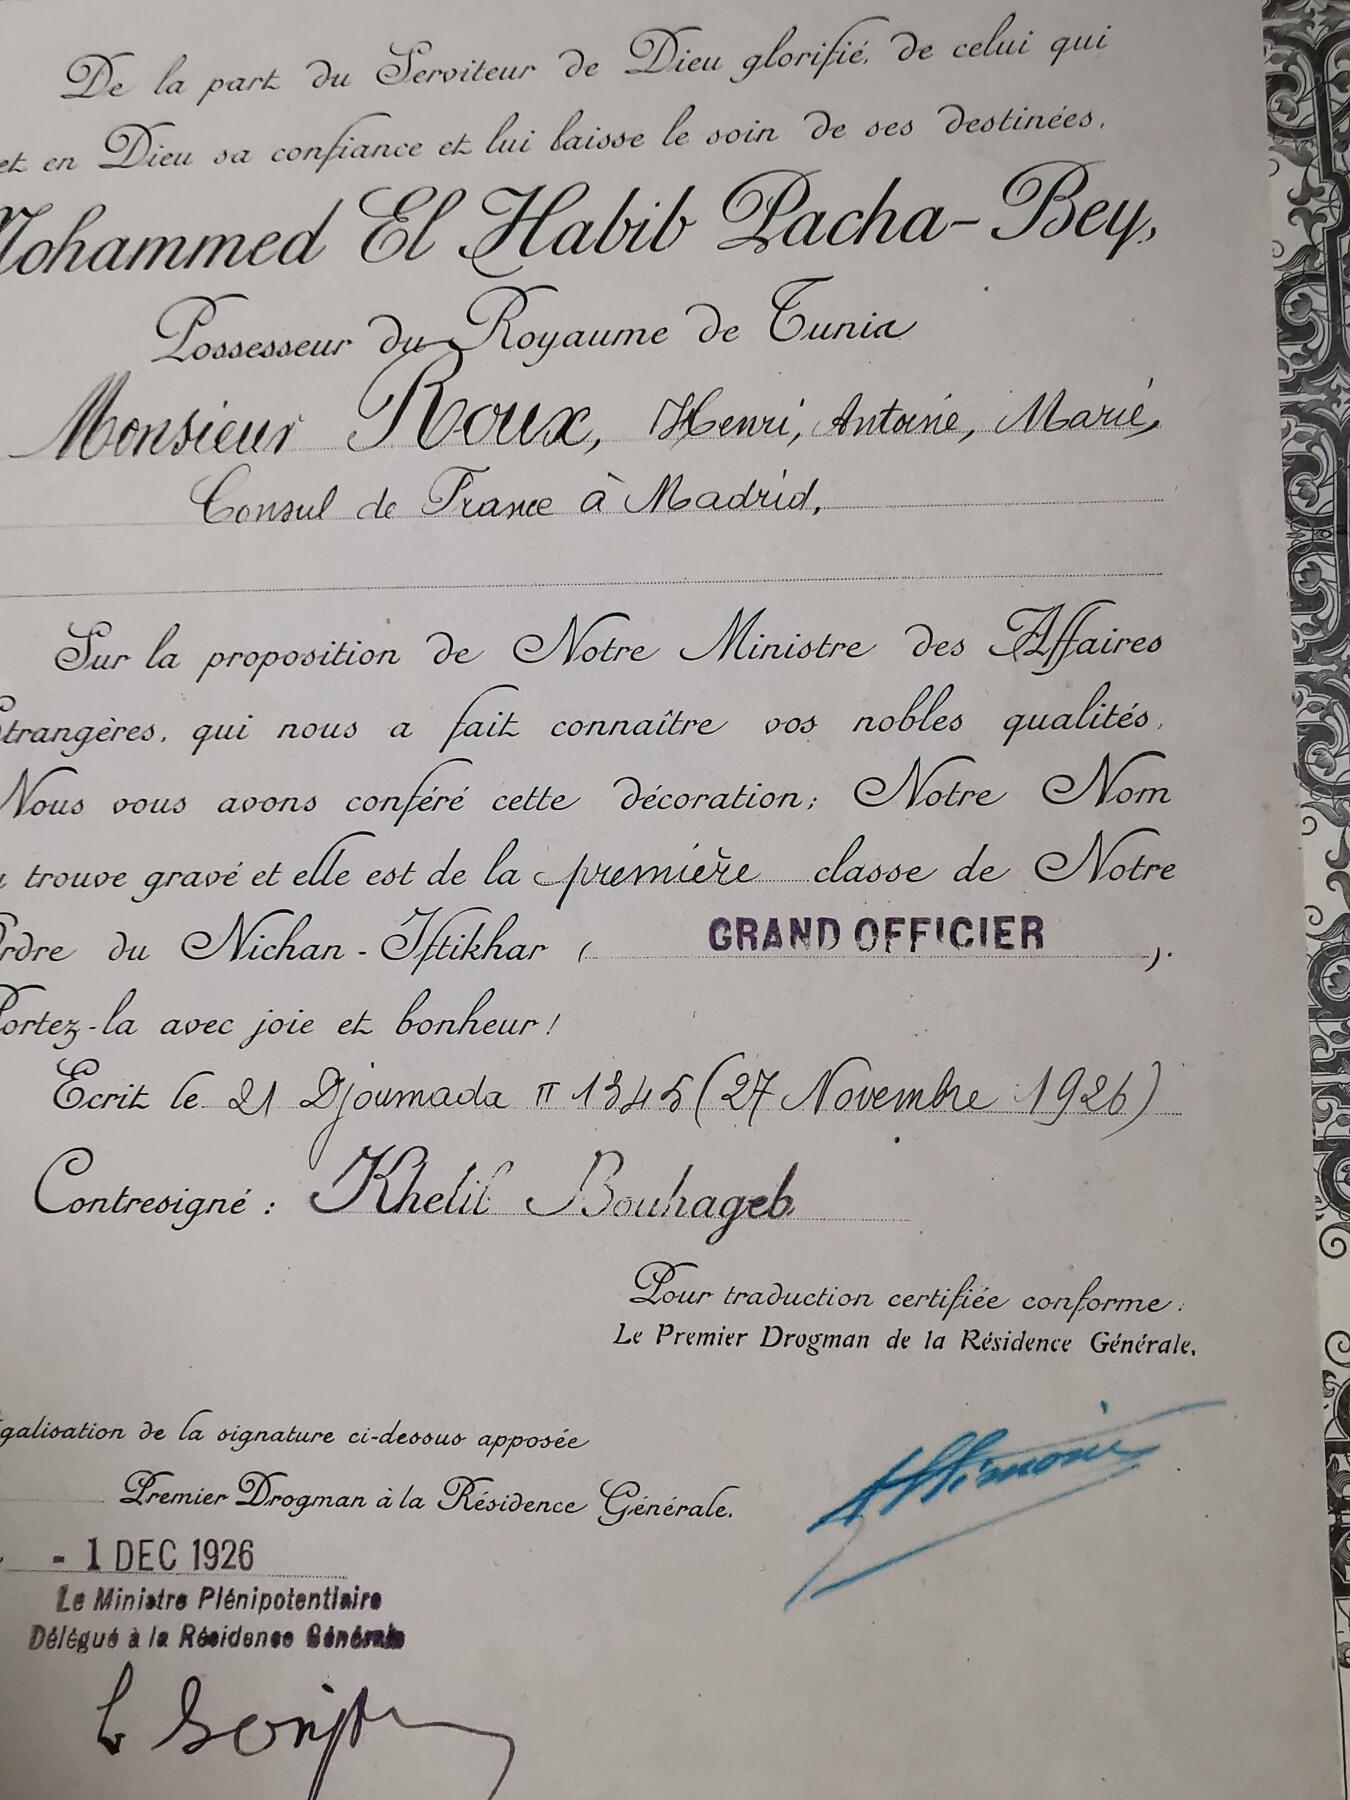 De la part du Serviteur de Dieu glorifié, de celui qui
et en Dieu sa confiance et lui laisse le soin de ses destinées,
Mohammed El Habib Pacha-Bey,
Possesseur du Royaume de Tunis
Monsieur Roux, Henri, Antoine, Marie,
Consul de France à Madrid,
Sur la proposition de Notre Ministre des Affaires
Etrangères, qui nous a fait connaître vos nobles qualités,
Nous vous avons conféré cette décoration; Notre Nom
trouve gravé et elle est de la première classe de Notre
Ordre du Nichan-Iftikhar ( GRAND OFFICIER ).
Portez-la avec joie et bonheur!
Ecrit le 21 Djoumada II 1345 (27 Novembre 1926)
Contresigné: Khelil Bouhageb
Pour traduction certifiée conforme:
Le Premier Drogman de la Résidence Générale,
égalisation de la signature ci-dessus apposée
Premier Drogman à la Résidence Générale.
- 1 DEC 1926
Le Ministre Plénipotentiaire
Délégué à la Résidence Générale